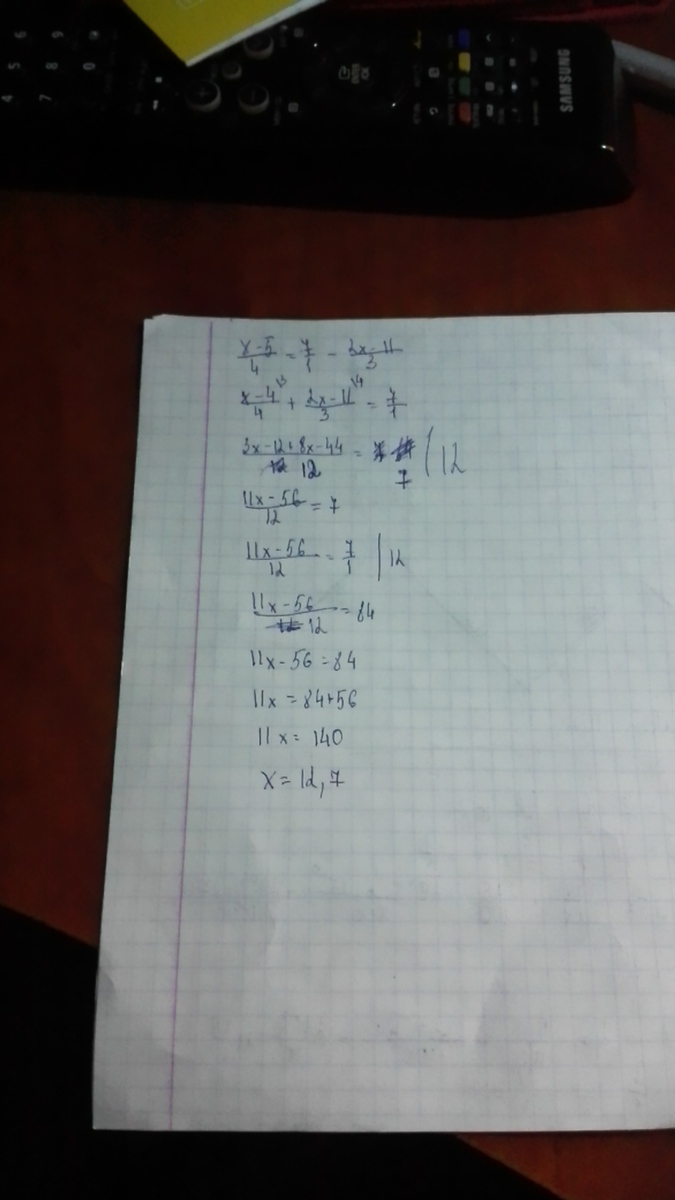 SAMSUNG
x-5/4 = 7/1 - 2x-11/3
x-4\3/4 + 2x-11\4/3 = 7/1
3x-12+8x-44/12 = 7 | 12
11x-56/12 = 7
11x-56/12 = 7/1 | 12
11x-56/12 = 84
11x-56=84
11x=84+56
11x= 140
x= 12,7